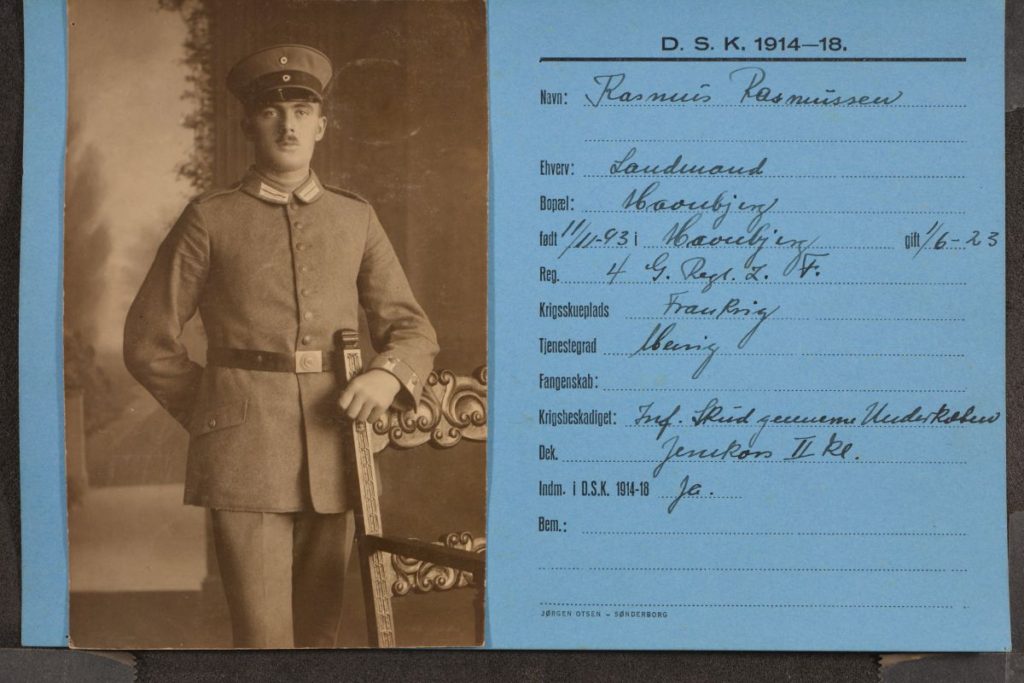 D. S. K. 1914—18.
Navn: Rasmus Rasmussen
Ehverv: Landmand
Bopæl: Havnbjerg
født 11/11-93 i Havnbjerg gift 1/6-23
Reg. 4 G. Regt. z. F.
Krigsskueplads Frankrig
Tjenestegrad Menig
Fangenskab:
Krigsbeskadiget: Inf. Skud gennem Underkæben
Dek. Jernkors II kl.
Indm. i D.S.K. 1914-18 Ja.
Bem.:
JØRGEN OTSEN – SØNDERBORG